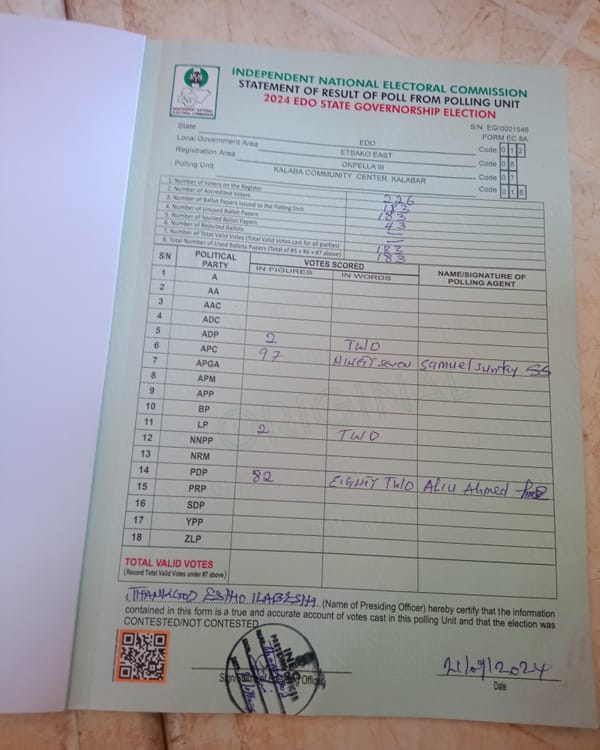 INDEPENDENT NATIONAL ELECTORAL COMMISSION
STATEMENT OF RESULT OF POLL FROM POLLING UNIT
2024 EDO STATE GOVERNORSHIP ELECTION
S/N. EG/0001548
FORM EC 8A
State EDO Code 0 1 2
Local Government Area ETSAKO EAST Code 0 8
Registration Area OKPELLA III Code 0 7
Polling Unit KALABA COMMUNITY CENTER, KALABAR Code 0 1 8
1. Number of Voters on the Register 226
2. Number of Accredited Voters 183
3. Number of Ballot Papers Issued to the Polling Unit 183
4. Number of Unused Ballot Papers 43
5. Number of Spoiled Ballot Papers —
6. Number of Rejected Ballots —
7. Number of Total Valid Votes (Total Valid Votes cast for all parties) 183
8. Total Number of Used Ballots Papers (Total of #5 + #6 + #7 above) 183
S/N POLITICAL PARTY VOTES SCORED NAME/SIGNATURE OF POLLING AGENT
IN FIGURES IN WORDS
1 A
2 AA
3 AAC
4 ADC
5 ADP 2 TWO
6 APC 97 NINETY SEVEN Samuel Sunday SS
7 APGA
8 APM
9 APP
10 BP
11 LP 2 TWO
12 NNPP
13 NRM
14 PDP 82 EIGHTY TWO Aliu Ahmed
15 PRP
16 SDP
17 YPP
18 ZLP
ORIGINAL
TOTAL VALID VOTES
(Record Total Valid Votes under #7 above)
I, THANKGOD (Name of Presiding Officer) hereby certify that the information
contained in this form is a true and accurate account of votes cast in this polling Unit and that the election was
CONTESTED/NOT CONTESTED
21/09/2024
Date